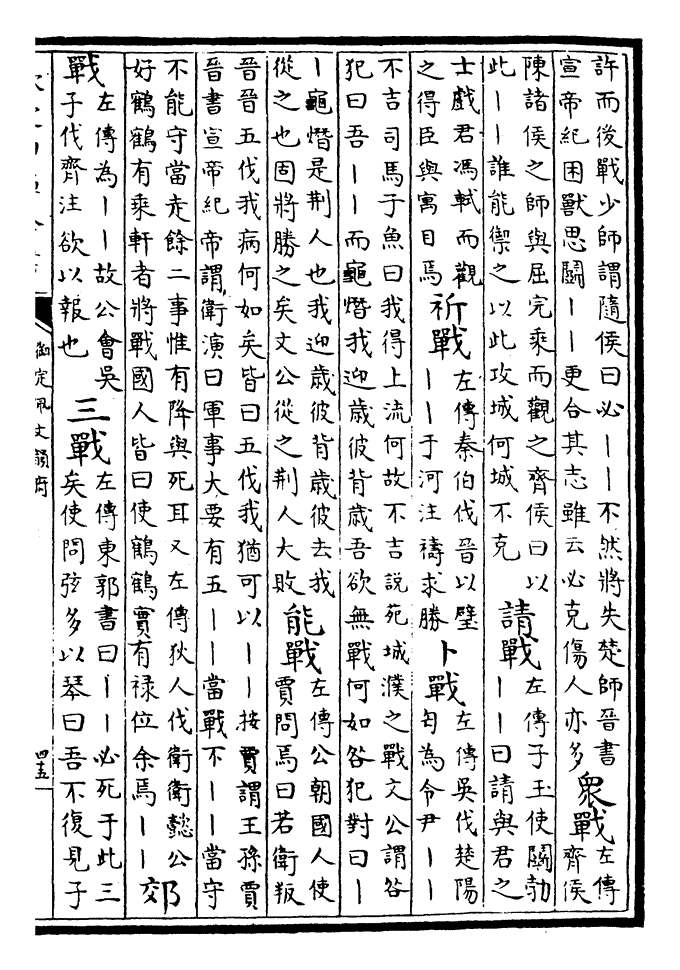 許而後戰少師謂隨侯曰必丨丨不然將失楚師晉書
宣帝紀困獸思鬭丨丨更合其志雖云必克傷人亦多
衆戰
左傳
齊侯
陳諸侯之師與屈完乘而觀之齊侯曰以
此丨丨誰能禦之以此攻城何城不克
請戰
左傳子玉使鬭勃
丨丨曰請與君之
士戲君馮軾而觀
之得臣與寓目焉
祈戰
左傳秦伯伐晉以璧
丨丨于河注禱求勝
卜戰
左傳吳伐楚陽
匄為令尹丨丨
不吉司馬子魚曰我得上流何故不吉說苑城濮之戰文公謂咎
犯曰吾丨丨而龜熸我迎歲彼背歲吾欲無戰何如咎犯對曰丨
丨龜熸是荆人也我迎歲彼背歲彼去我
從之也固將勝之矣文公從之荆人大敗
能戰
左傳公朝國人使
賈問焉曰若衛叛
晉晉五伐我病何如矣皆曰五伐我猶可以丨丨按賈謂王孫賈
晉書宣帝紀帝謂衛演曰軍事大要有五丨丨當戰不丨丨當守
不能守當走餘二事惟有降與死耳又左傳狄人伐衛衛懿公
好鶴鶴有乘軒者將戰國人皆曰使鶴鶴實有禄位余焉丨丨
郊
戰
左傳為丨丨故公會吳
子伐齊注欲以報也
三戰
左傳東郭書曰丨丨必死于此三
矣使問弦多以琴曰吾不復見子
御定佩文韻府
四十五